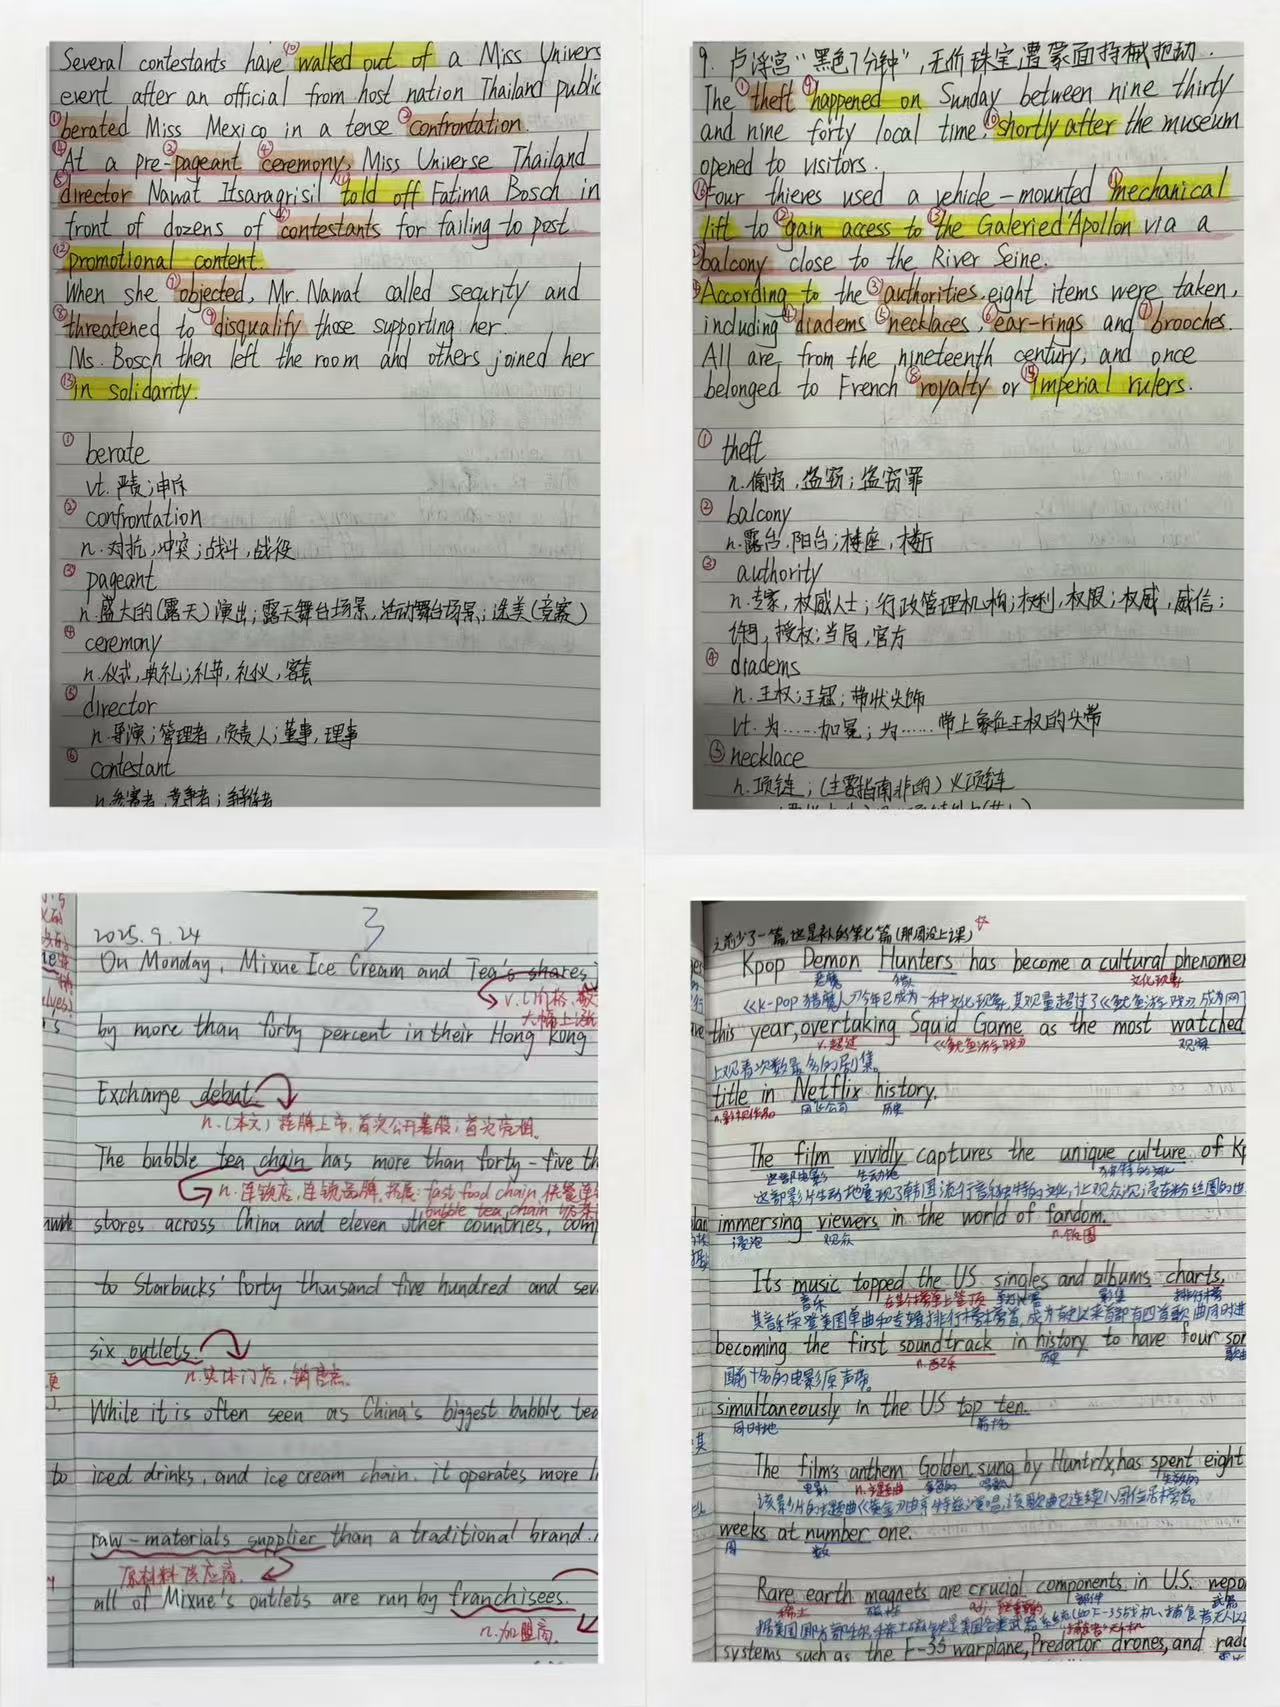 Several contestants have ⑩walked out of a Miss Univers
event after an official from host nation Thailand public
①berated Miss Mexico in a tense ②confrontation.
At a pre-③pageant ④ceremony, Miss Universe Thailand
⑤director Nawat Itsaragrisil ⑪told off Fatima Bosch in
front of dozens of ⑥contestants for failing to post
⑫promotional content.
When she ⑦objected, Mr. Nawat called security and
⑧threatened to ⑨disqualify those supporting her.
Ms. Bosch then left the room and others joined her
⑬in solidarity.
① berate
vt. 严责;申斥
② confrontation
n. 对抗,冲突;战斗,战役
③ pageant
n. 盛大的(露天)演出;露天舞台场景,活动舞台场景;选美(竞赛)
④ ceremony
n. 仪式,典礼;礼节,礼仪,客套
⑤ director
n. 导演;管理者,负责人;董事,理事
⑥ contestant
n. 参赛者,竞争者;
9. 卢浮宫“黑色7分钟”,无价珠宝遭蒙面持械抢劫.
The ①theft ⑨happened on Sunday between nine thirty
and nine forty local time, ⑩shortly after the museum
opened to visitors.
Four thieves used a vehicle-mounted ⑪mechanical
lift to ⑫gain access to ⑬the Galeried'Apollon via a
②balcony close to the River Seine.
⑭According to the ③authorities, eight items were taken,
including ④diadems ⑤necklaces, ⑥ear-rings and ⑦brooches.
All are from the nineteenth century, and once
belonged to French ⑧royalty or ⑮imperial rulers.
① theft
n. 偷窃,盗窃;盗窃罪
② balcony
n. 露台,阳台;楼座,楼厅
③ authority
n. 专家,权威人士;行政管理机构;权利,权限;权威,威信;
许可,授权;当局,官方
④ diadems
n. 王权;王冠;带状头饰
vt. 为……加冕;为……带上象征王权的头带
⑤ necklace
n. 项链;(主要指南非的)火项链
3
2025.9.24
On Monday, Mixue Ice Cream and Tea's shares
v.(价格,
大幅上涨
by more than forty percent in their Hong Kong
Exchange debut.
n.(本文)挂牌上市,首次公开募股;首次亮相.
The bubble tea chain has more than forty-five th
n. 连锁店,连锁品牌,拓展:fast food chain,快餐
bubble tea chain
stores across China and eleven other countries, comp
to Starbucks' forty thousand five hundred and sev
six outlets.
n.实体门店,销售点.
While it is often seen as China's biggest bubble tea
iced drinks, and ice cream chain, it operates more
raw-materials supplier than a traditional brand.
原材料供应商.
all of Mixue's outlets are run by franchisees.
n.加盟商.
之前少了一篇,也是补的第七篇(那周没上课)☆
Kpop Demon Hunters has become a cultural phenomen
恶魔 猎人 文化现象
《K-pop猎魔人》今年已成为一种文化现象,其观量超过了《鱿鱼游戏》成为网飞
this year, overtaking Squid Game as the most watched
v.超过 《鱿鱼游戏》 观看
上观看次数最多的剧集。
title in Netflix history.
n.影视作品 网飞公司 历史
The film vividly captures the unique culture of Kp
这部电影 生动地 独特的文化
这部影片生动地展现了韩国流行音乐独特的文化,让观众沉浸在粉丝圈的世
immersing viewers in the world of fandom.
浸泡 观众 n.饭圈
Its music topped the US singles and albums charts,
音乐 在某个榜单上登顶 影集 排行榜
其音乐荣登美国单曲和专辑排行榜榜首,成为有史以来首部有四首歌曲同时进
becoming the first soundtrack in history to have four son
n.配乐 历史 歌曲
国前十名的电影原声带。
simultaneously in the US top ten.
同时地 前十名
The film's anthem Golden, sung by Huntr/x, has spent eight
电影 n.主题曲 金色的 唱歌
该影片的主题曲《黄金》由 演唱,该歌曲已连续八周位居榜首。
weeks at number one.
周 数
Rare earth magnets are crucial components in U.S. weapo
稀土 磁铁 adj.至关重要的 部件 武器
systems such as the F-35 warplane, Predator drones, and rada